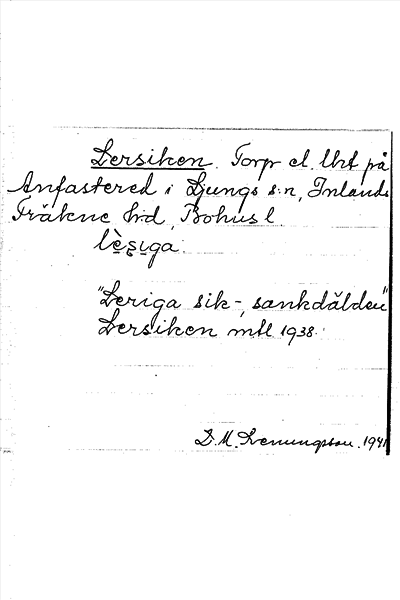 Lersiken. Torp el. lht på
Anfastered i Ljungs s:n, Inlands
Fräkne hd, Bohus l.
lè̱s̱i̱ga.
"Leriga sik-, sankdälden"
Lersiken mtl 1938.
D. M. Svenungsson. 1941